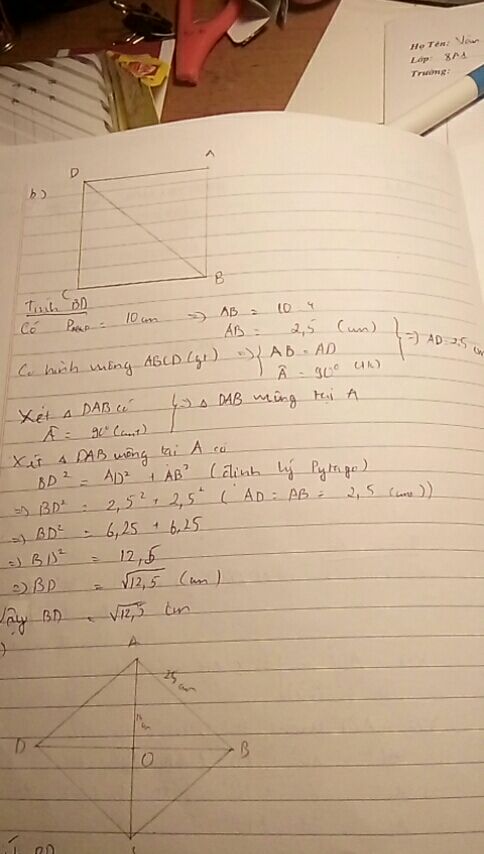 Họ Tên: Vân
Lớp: 8A1
Trường:
D
A
b)
C
B
Tính BD
Có = 10 cm => AB = 10 : 4
AB = 2,5 (cm)
hình vuông ABCD (gt) => { AB = AD } => AD = 2,5 cm
Â = 90°
Xét Δ DAB có } => Δ DAB vuông tại A
Â = 90° (cmt)
Xét Δ DAB vuông tại A có
BD² = AD² + AB² (Định lý Pytago)
=> BD² = 2,5² + 2,5² ( AD = AB = 2,5 (cm))
=> BD² = 6,25 + 6,25
=> BD² = 12,5
=> BD = √12,5 (cm)
Vậy BD = √12,5 cm
)
A
25 cm
cm
D
O
B
BD